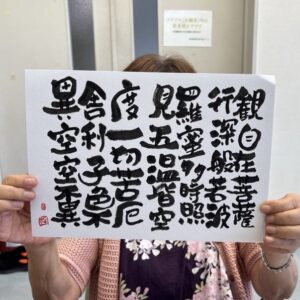 観自在菩薩
行深般若波
羅蜜多時照
見五温皆空
度一切苦厄
舎利子色不
異空空不異